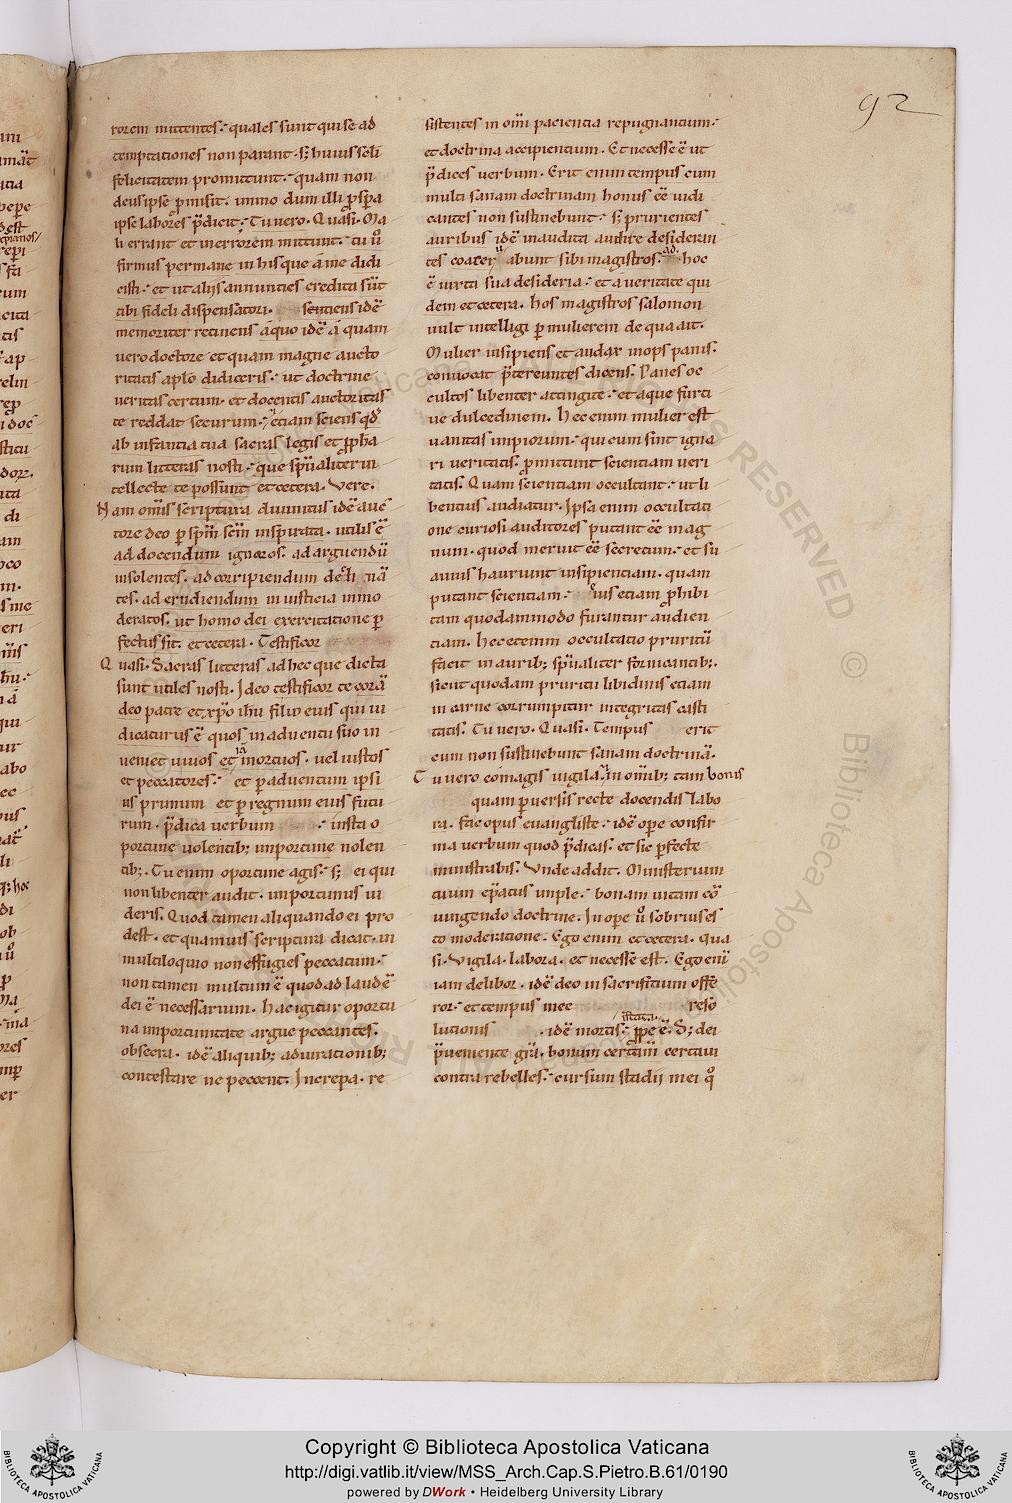 92
rorem mittentes. quales sunt qui se ad
temptationes non parant. s; huius scli
felicitatem promittunt. quam non
deus ipse ꝓmisit. immo dum illi ꝓspa
ipse labores p̄dicit. Tu vero. Quasi. Ma
li errant et in errorem mittunt. tu u̾
firmus permane in his que a me didi
cisti. et ut aliis annunties credita sūt
tibi fideli dispensatori. sentiens idē
memoriter retinens a quo idē a quam
vero doctore et quam magne aucto
ritatis aplo didiceris. ut doctrine
veritas certum. et docentis auctoritas
te reddat securum. etiam sciens qd̄
ab infantia tua sacras legis et ꝓpha
rum litteras nosti. que spūaliter in
tellecte te possunt et cetera. Vere.
Nam om̄is scriptura divinitus idē auc
tore deo p spm̄ scm̄ inspirata. utilis ē
ad docendum ignaros. ad arguendū
insolentes. ad corripiendum
tes. ad erudiendum in iusticia inmo
deratos. ut homo dei exercitatione p
fectus sit. et cetera. Testificor
Quasi. Sacras litteras ad hec que dicta
sunt utiles nosti. Ideo testificor te corā
deo patre et xpo ihu filio eius qui iu
dicaturus ē quos in adventu suo in
veniet vivos et iā mortuos. vel iustos
et peccatores. et p adventum ipsi
us primum et p regnum eius futu
rum. p̄dica verbum insta o
portune volentib; importune nolen
tib;. Tu enim oportune agis. s; ei qui
non libenter audit. importunus vi
deris. Quod tamen aliquando ei pro
dest. et quamuis scriptura dicat. in
multiloquio non effugies peccatum.
non tamen multum ē quod ad laudē
dei ē necessarium. Hac igitur oportu
na importunitate argue peccantes.
obsecra. idē aliquib; adiurationib;
contestare ne peccent. Increpa. re
sistentes in om̄i paciencia repugnantium.
et doctrina accipientium. Et necesse ē ut
p̄dices verbum. Erit enim tempus cum
multi sanam doctrinam honus eē iudi
cantes non sustinebunt. s; prurientes
auribus idē inaudita audire desideran
tes coacervabunt sibi magistros. ad. hoc
ē iuxta sua desideria. et a veritate qui
dem et cetera. Hos magistros salomon
vult intelligi p mulierem de qua ait.
Mulier insipiens et audax inops panis.
convocat p̄tereuntes dicens. Panes oc
cultos libenter attingite. et aque furti
ve dulcedinem. Hec enim mulier est
vanitas impiorum. qui cum sint igna
ri veritatis. ꝓmittunt scientiam veri
tatis. Quam scientiam occultant. ut li
bentius audiatur. Ipsa enim occultati
one curiosi auditores putant eē mag
num. quod meruit eē secretum. et su
avius hauriunt insipientiam. quam
putant scientiam. Cuius etiam ꝓhibi
tam quodammodo furantur audien
tiam. Hec etenim occultatio pruritū
facit in aurib; spūaliter fornicantib;.
sicut quodam pruritu libidinis etiam
in carne corrumpitur integritas casti
tatis. Tu vero. Quasi. Tempus erit
cum non sustinebunt sanam doctrinā.
Tu vero eo magis vigila. in om̄ib; tam bonis
quam pversis recte docendis labo
ra. fac opus evangliste. idē ope confir
ma verbum quod p̄dicas. et sic pfecte
ministrabis. Vnde addit. Ministerium
tuum ep̄atus imple. bonam vitam cō
iungendo doctrine. In ope u̾ sobrius es
to moderatione. Ego enim et cetera. Qua
si. Vigila. labora. et necesse est. Ego enī
iam delibor. idē deo in sacrificium offe
ror. et tempus mee reso
lutionis instat. idē mortis. ꝓpe ē. S; dei
p̄veniente grā. bonum certam̄ certavi
contra rebelles. cursum stadii mei qͦ
Copyright © Biblioteca Apostolica Vaticana
http://digi.vatlib.it/view/MSS_Arch.Cap.S.Pietro.B.61/0190
powered by DWork • Heidelberg University Library